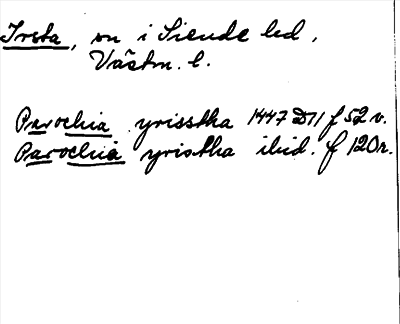 Irsta, sn i Siende hd,
Västm. l.
Parochia yrisstha 1447 D11 f 52 v.
Parochia yristha ibid. f 120r.